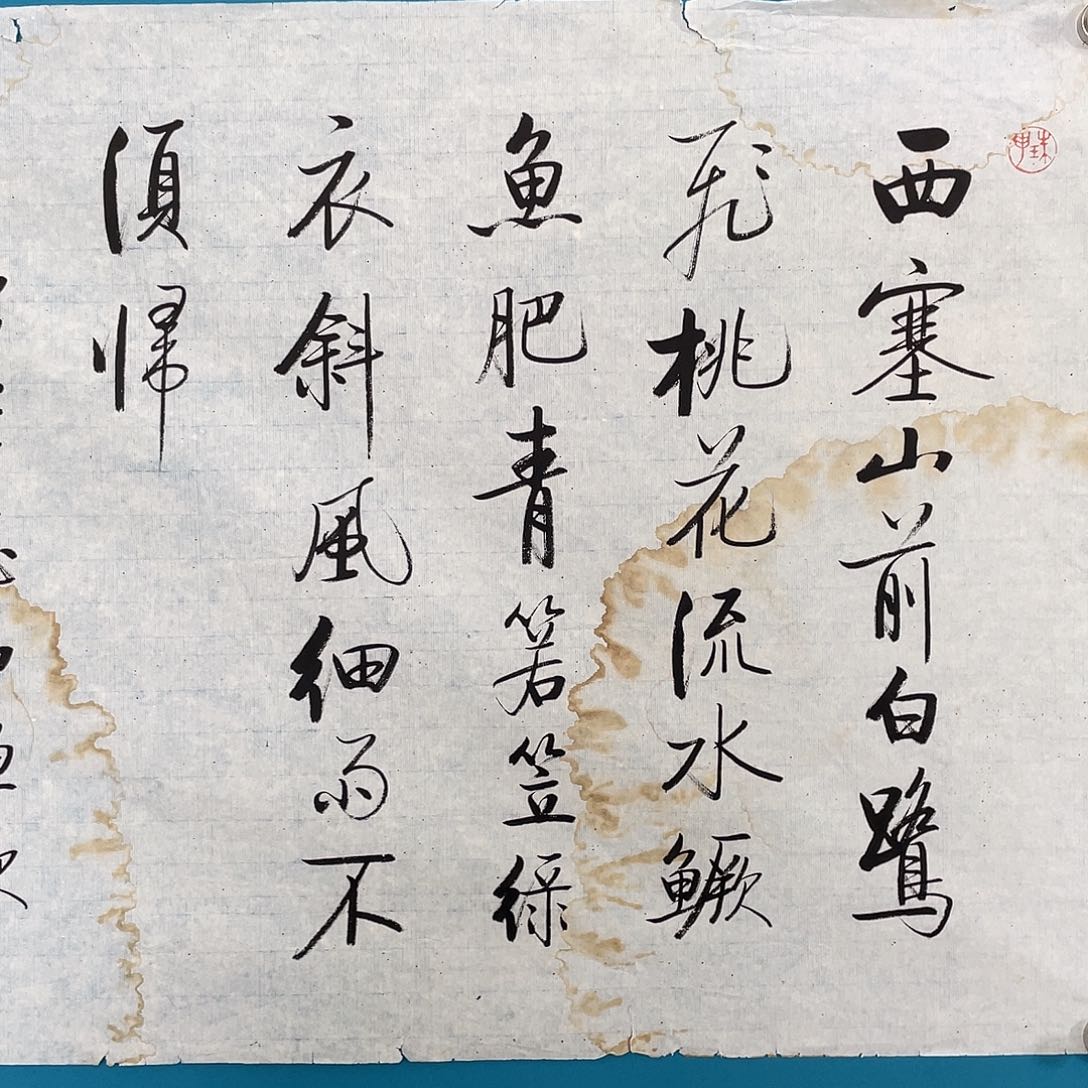 西塞山前白鷺
飛桃花流水鱖
魚肥青箬笠綠
衣斜風細雨不
須歸